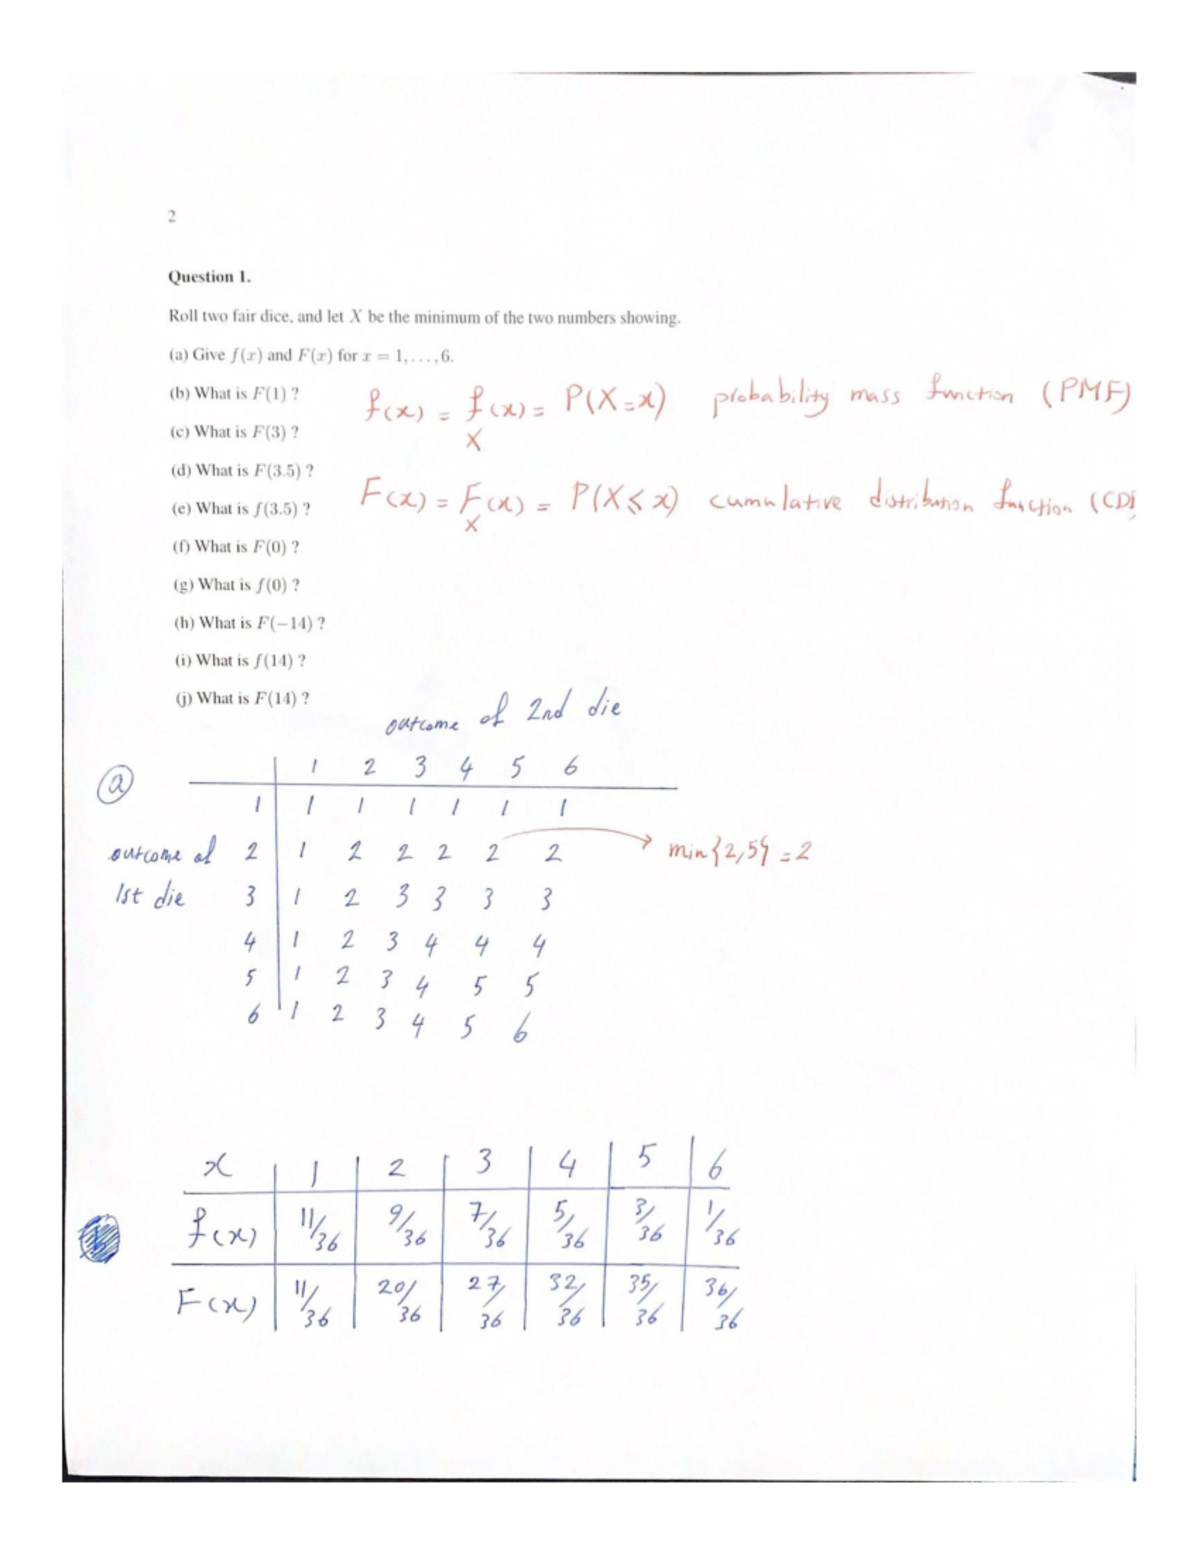 2
Question 1.
Roll two fair dice, and let X be the minimum of the two numbers showing.
(a) Give f(x) and F(x) for x = 1, . . . , 6.
(b) What is F(1) ?
f(x) = f_X(x) = P(X=x) probability mass function (PMF)
(c) What is F(3) ?
(d) What is F(3.5) ?
F(x) = F_X(x) = P(X≤x) cumulative distribution function (CDF
(e) What is f(3.5) ?
(f) What is F(0) ?
(g) What is f(0) ?
(h) What is F(−14) ?
(i) What is f(14) ?
(j) What is F(14) ?
outcome of 2nd die
(a)
1 2 3 4 5 6
1 1 1 1 1 1 1
outcome of 2 1 2 2 2 2 2 min{2,5} = 2
1st die 3 1 2 3 3 3 3
4 1 2 3 4 4 4
5 1 2 3 4 5 5
6 1 2 3 4 5 6
x 1 2 3 4 5 6
f(x) 11/36 9/36 7/36 5/36 3/36 1/36
F(x) 11/36 20/36 27/36 32/36 35/36 36/36